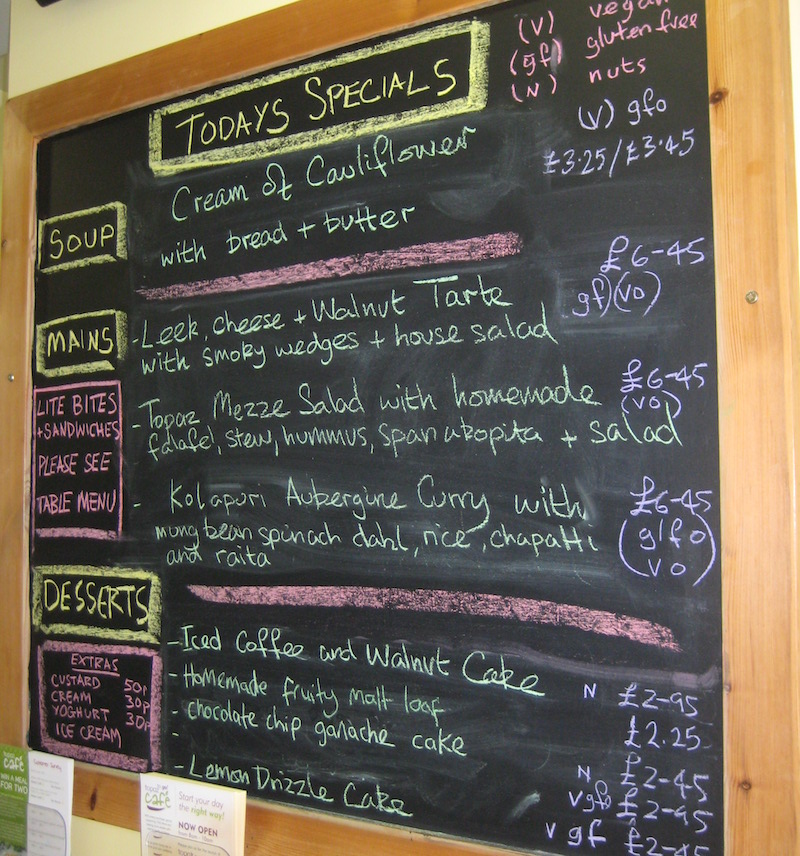 (V) vegan
(gf) gluten free
(N) nuts
TODAYS SPECIALS
(V) gfo
£3.25/£3.45
SOUP
Cream of Cauliflower
with bread + butter
MAINS
- Leek, cheese + Walnut Tarte
with smoky wedges + house salad
£6-45
gf)(vo)
LITE BITES
+ SANDWICHES
PLEASE SEE
TABLE MENU
- Topaz Mezze Salad with homemade
falafel, stew, hummus, spanakopita + salad
£6-45
(vo)
- Kolapuri Aubergine Curry with
mung bean spinach dahl, rice, chapatti
and raita
£6-45
(g/fo
vo)
DESSERTS
- Iced Coffee and Walnut Cake
- Homemade fruity malt loaf
- chocolate chip ganache cake
-
- Lemon Drizzle Cake
N £2-95
£2.25
N £2-45
vgfo £2-45
v gf £2-45
EXTRAS
CUSTARD 50p
CREAM 30p
YOGHURT 30p
ICE CREAM
café
WIN A MEAL
FOR TWO
café
Start your day
the right way!
NOW OPEN